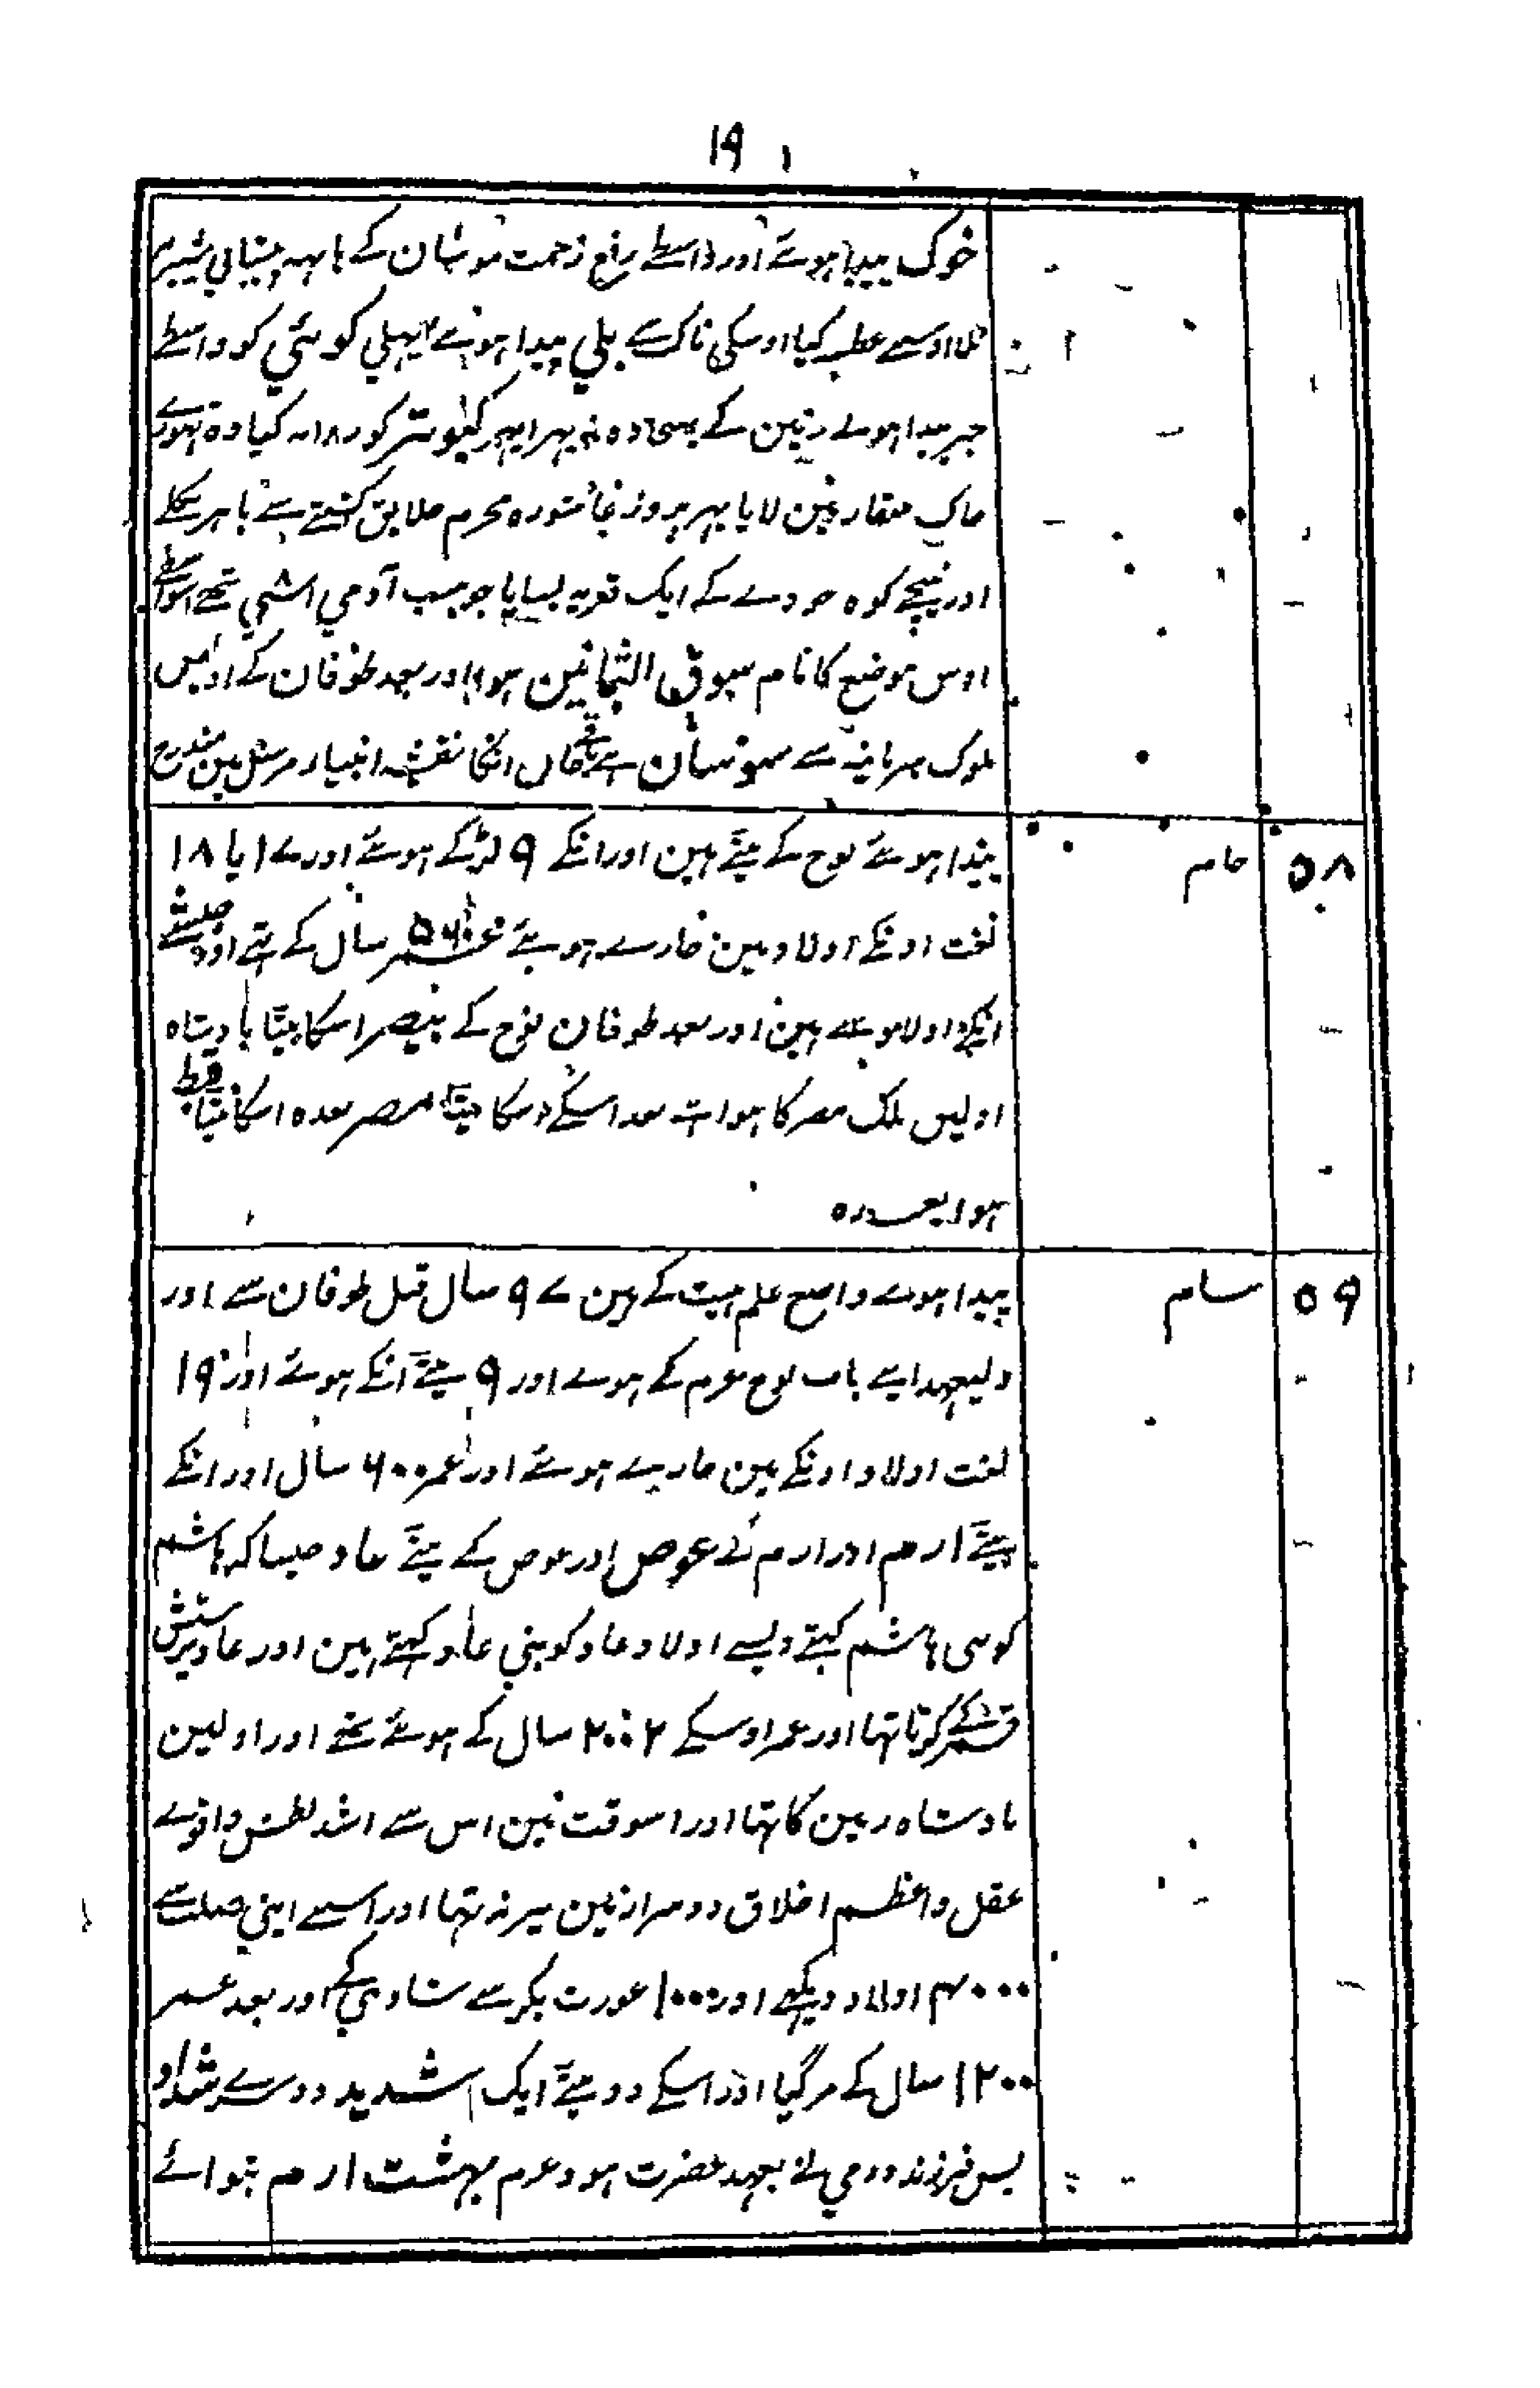 ۱۹
خوک پیدا ہوئے اور واسطے رفع زحمت موشان کے ہاتہہ پیشانی شیر پر
ملا اوسے عطسہ کیا اوسکی ناک سے بلی پیدا ہونے پہلی کوئی کو واسطے
خبر پیدا ہونے زمین کے بھیجا وہ نہ پہرا پہر کبوتر کو روانہ کیا وہ تہوڑے
خاک منقار مین لایا پہر بروز عاشورہ محرم خلایق کشتے سے باہر نکلے
اور نیچے کوہ جودے کے ایک قریہ بسایا جو سب آدمی اشی تھے اسواسطے
اوس موضع کا نام سوق الثمانین ہوا اور بعد طوفان کے اولیں
ملوک سریانیہ سے سوسان انکا نقشہ انبیاء مرسل مین مندرج
۵۸
حام
پیدا ہوئے نوح کے بیٹے ہین اور انکے ۹ لڑکے ہوئے اور ۱۷ یا ۱۸
لغت اونکے اولاد مین جارے ہوئے عمر ۵۶۰ سال کے تہے اور حبشے
انکے اولاد ہوئے ہین اور بعد طوفان نوح کے بیصر اسکا بیٹا بادشاہ
اولیں ملک مصر کا ہوا بعد اسکے اسکا بیٹا مصر بعدہ اسکا بیٹا قبط
ہوا بعدہ
۵۹
سام
پیدا ہوے واضح علم ہیت کے ہین ۹۷ سال قبل طوفان سے اور
ولیعہد اپنے باپ نوح عرم کے ہوے اور ۹ بیٹے انکے ہوئے اور ۱۹
لغت اولاد اونکے مین جارے ہوئے اور عمر ۶۰۰ سال اور انکے
بیٹے ارم اور ارم کے عوص اور عوص کے بیٹے عاد جیسا کہ ہاشم
کو بنی ہاشم کہتے ویسے اولاد عاد کو بنی عاد کہتے ہین اور عاد پرستش
قمر کے کرتا تہا اور عمر اوسکے ۲۰۰۲ سال کے ہوئے تھے اور اولین
بادشاہ زمین کا تہا اور اسوقت مین اس سے اشد بطش و اقوے
عقل و اعظم اخلاق دوسرا زمین پر نہ تہا اور اسنے اپنی صلب سے
۴۰۰۰ اولاد دیکھے اور ۱۰۰۰ عورت بکر سے شادی کے اور بعد عمر
۱۲۰۰ سال کے مر گیا اور اسکے دو بیٹے ایک شدید دوسرے شداد
پس فرزند دومی نے بعہد حضرت ہود عرم بہشت ارم بنوائے